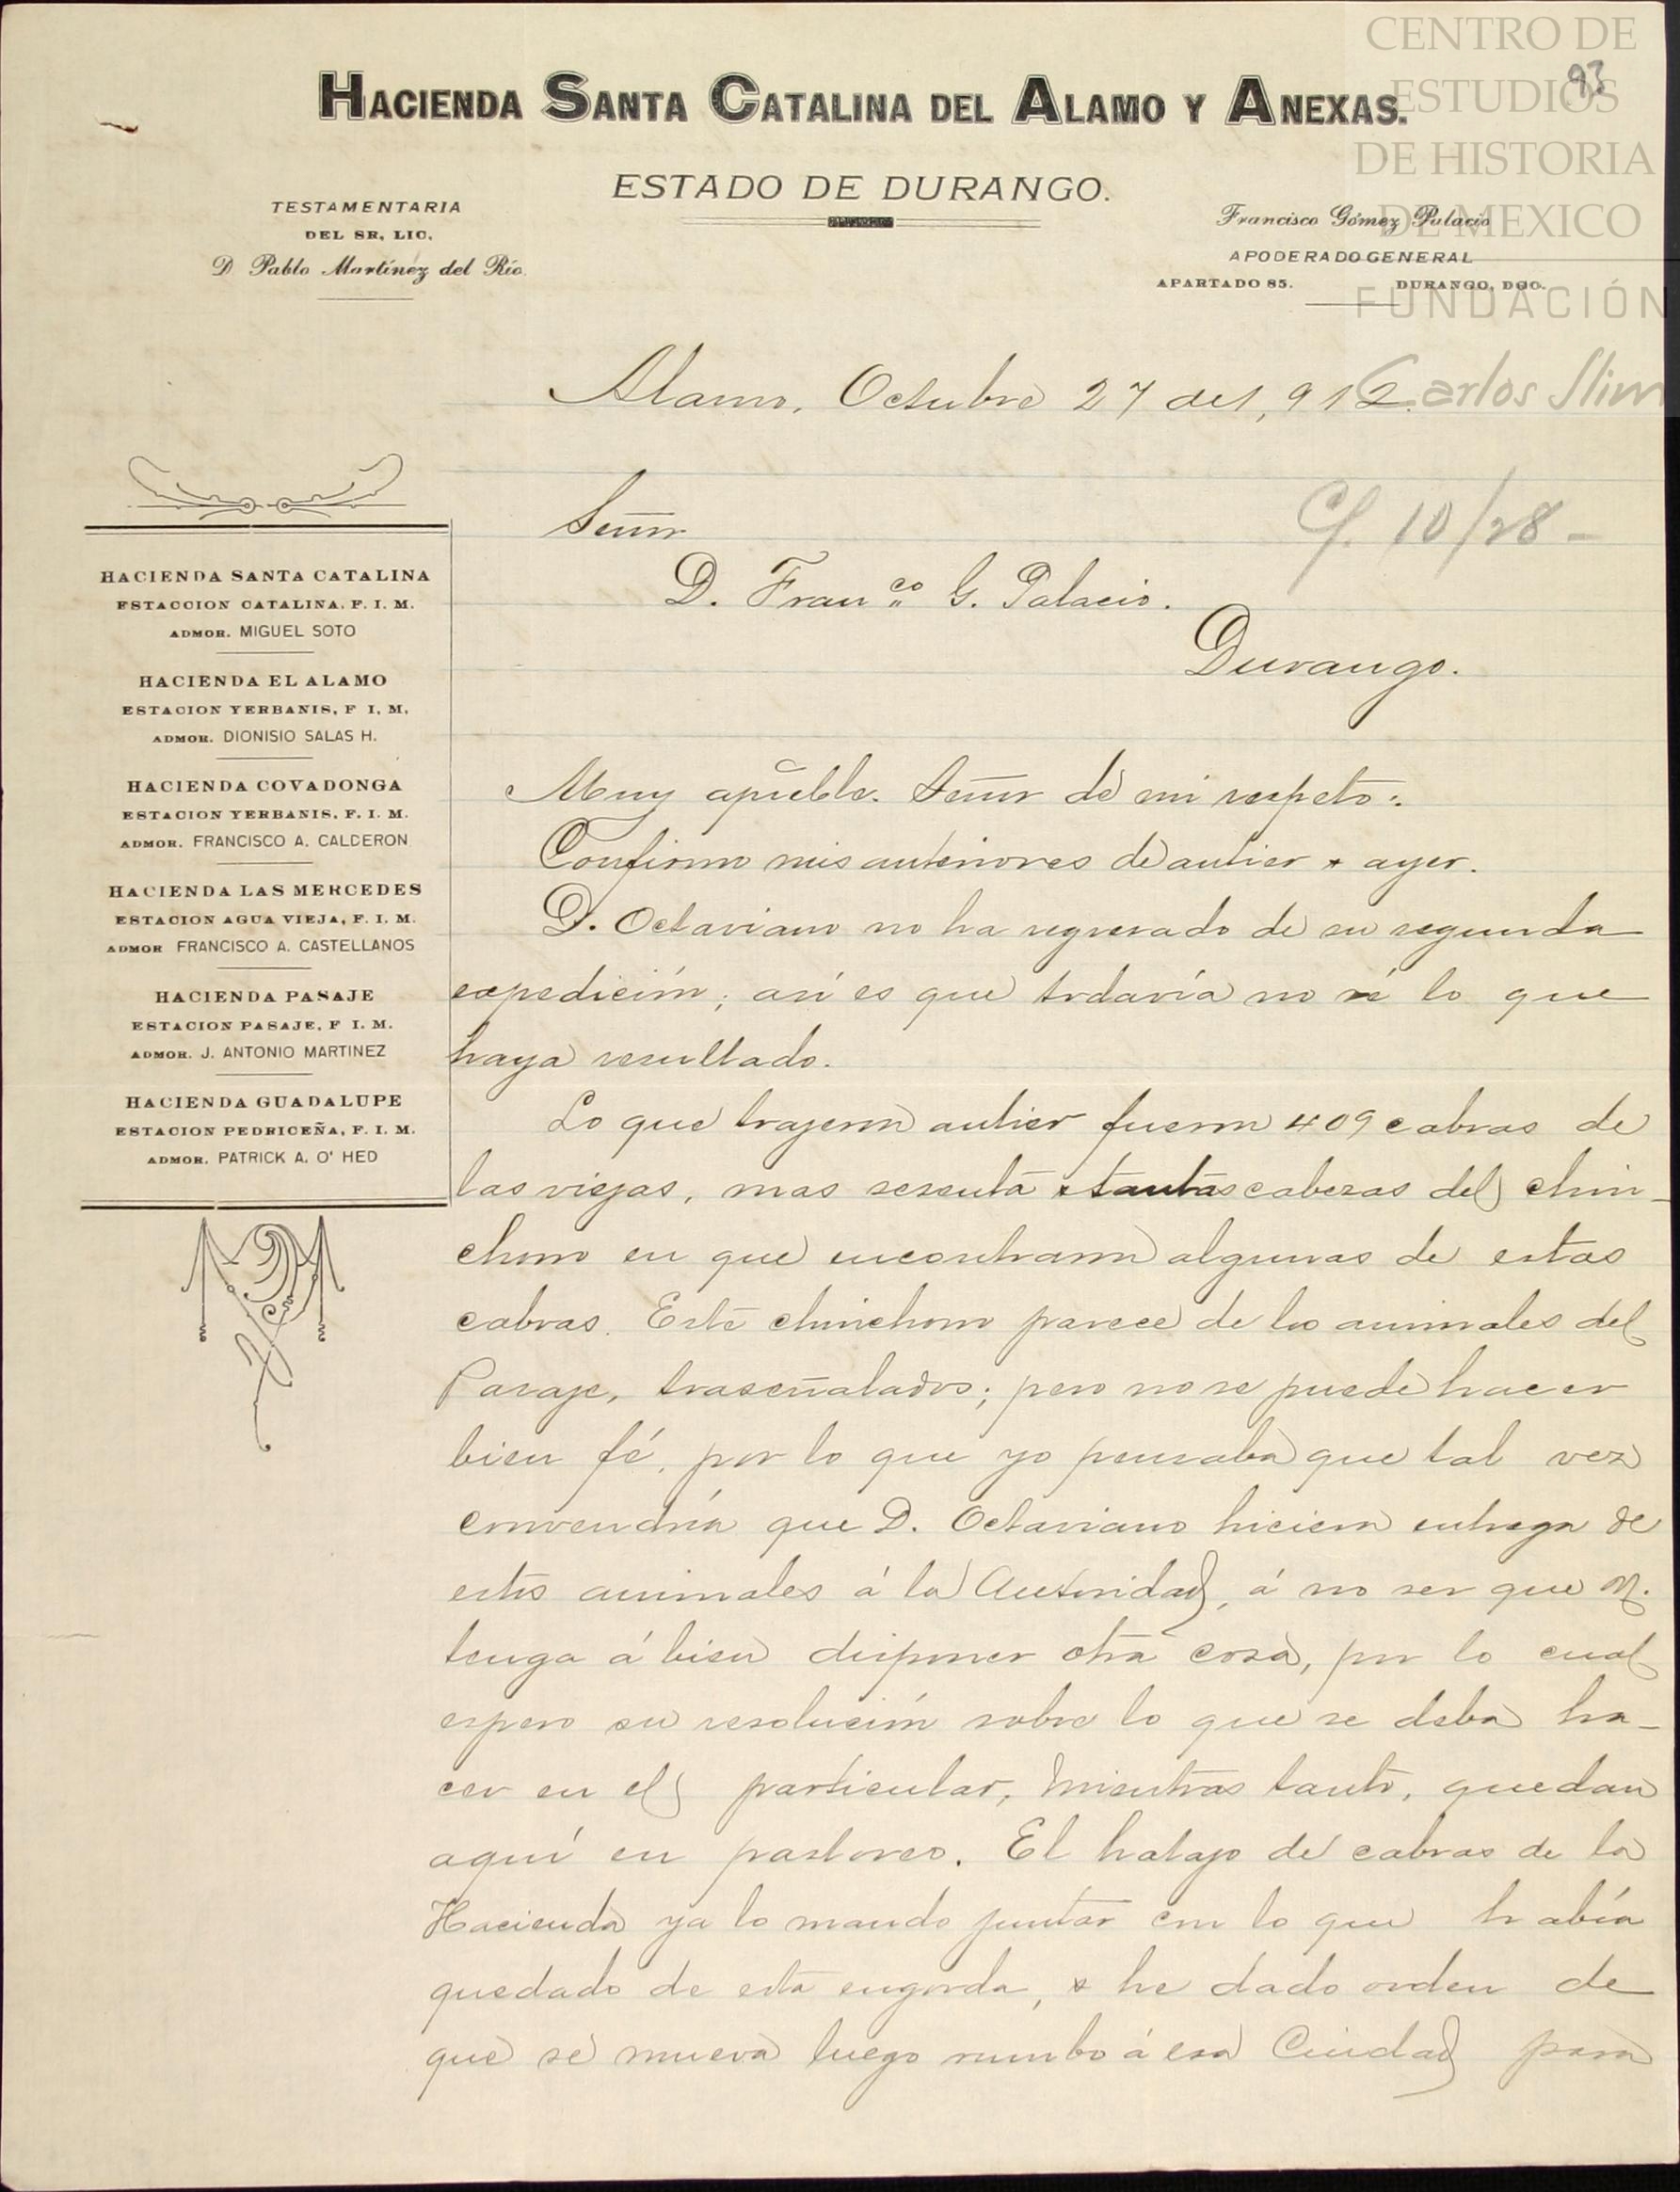 CENTRO DE
ESTUDIOS
DE HISTORIA
DE MEXICO
FUNDACIÓN
Carlos Slim
93
HACIENDA SANTA CATALINA DEL ALAMO Y ANEXAS.
ESTADO DE DURANGO.
TESTAMENTARIA
DEL SR. LIC.
D. Pablo Martínez del Río.
Francisco Gómez Palacio
APODERADO GENERAL
APARTADO 85. DURANGO, DGO.
Alamo, Octubre 27 de 1,912.
C/. 10/28-
HACIENDA SANTA CATALINA
ESTACCION CATALINA. F. I. M.
ADMOR. MIGUEL SOTO
HACIENDA EL ALAMO
ESTACION YERBANIS, F. I. M.
ADMOR. DIONISIO SALAS H.
HACIENDA COVADONGA
ESTACION YERBANIS. F. I. M.
ADMOR. FRANCISCO A. CALDERON
HACIENDA LAS MERCEDES
ESTACION AGUA VIEJA, F. I. M.
ADMOR FRANCISCO A. CASTELLANOS
HACIENDA PASAJE
ESTACION PASAJE, F. I. M.
ADMOR. J. ANTONIO MARTINEZ
HACIENDA GUADALUPE
ESTACION PEDRICEÑA, F. I. M.
ADMOR. PATRICK A. O' HED
Señor
D. Franco G. Palacio.
Durango.
Muy apreble. Señor de mi respeto:.
Confirmo mis anteriores de antier + ayer.
D. Octaviano no ha regresado de su segunda
expedición; así es que todavía no sé lo que
haya resultado.
Lo que trajeron antier fueron 409 cabras de
las viejas, mas sesenta + tantas cabezas del chin-
chorro en que encontraron algunas de estas
cabras. Este chinchorro parece de los animales del
Pasaje, traseñalados; pero no se puede hacer
bien fé, por lo que yo pensaba que tal vez
convendría que D. Octaviano hiciera entrega de
estos animales á la Autoridad, á no ser que U.
tenga á bien disponer otra cosa, por lo cual
espero su resolución sobre lo que se deba ha-
cer en el particular, mientras tanto, quedan
aquí en pastoreo. El hatajo de cabras de la
Hacienda ya lo mando juntar con lo que había
quedado de esta engorda, + he dado orden de
que se mueva luego rumbo á esa Ciudad para